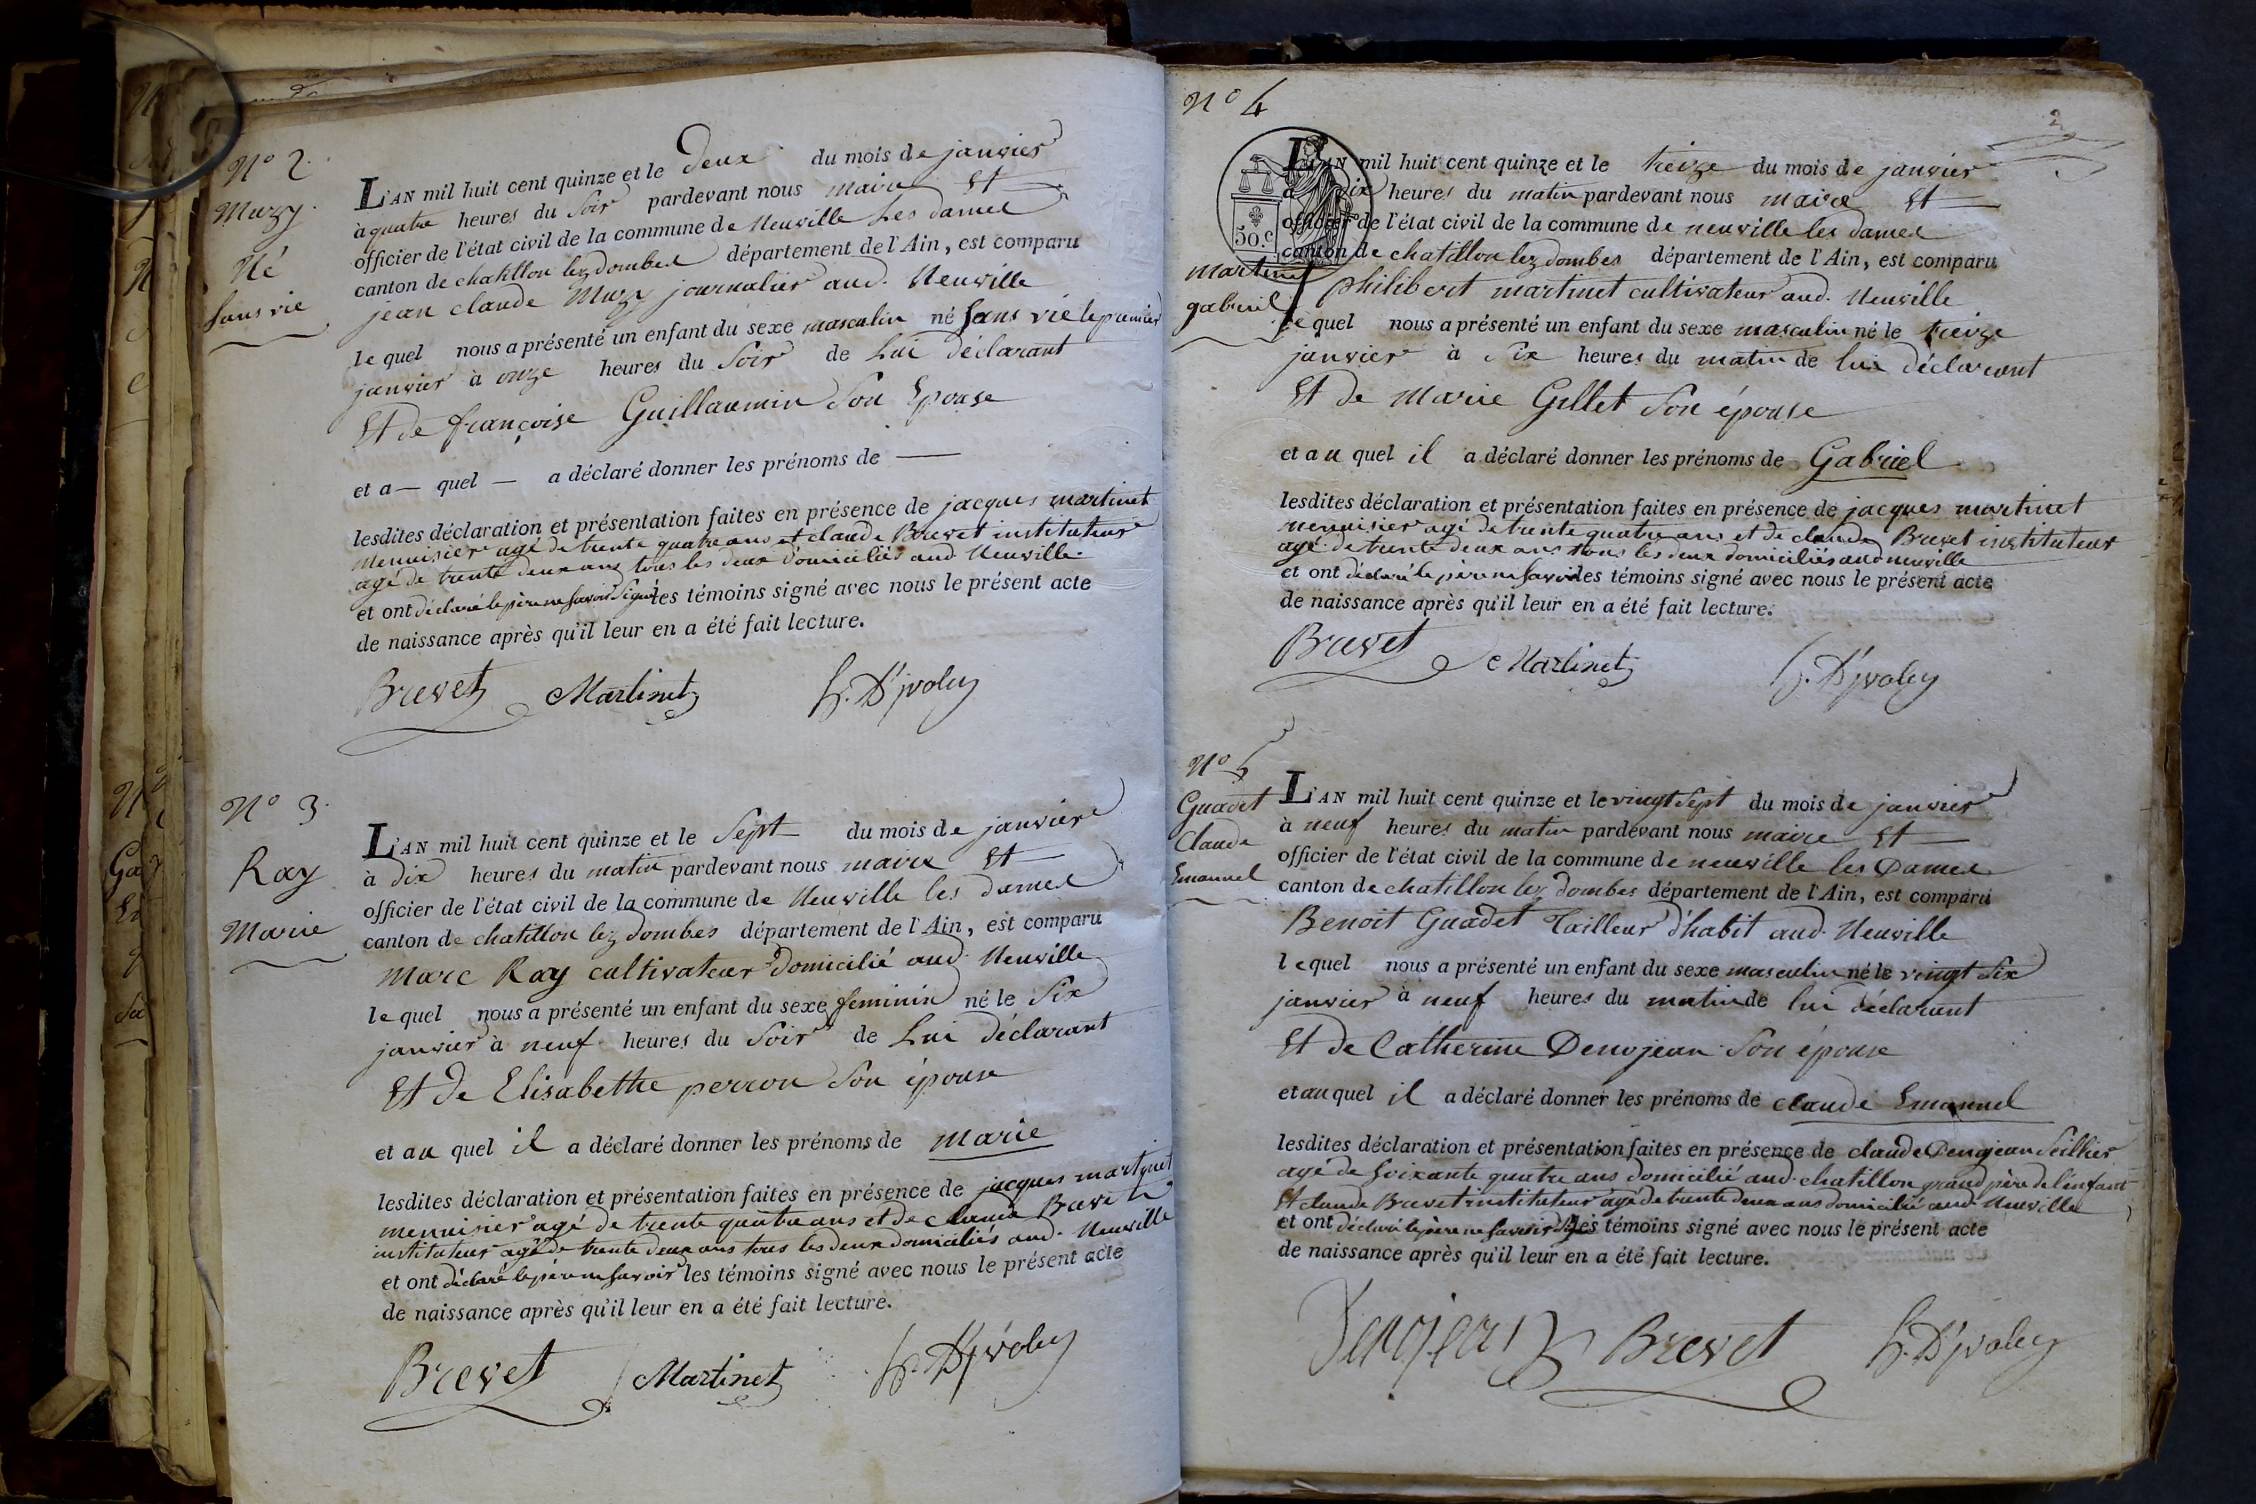 N° 2.
Muzy
Né
sans vie
L'AN mil huit cent quinze et le deux du mois de janvier
à quatre heures du soir pardevant nous maire Et
officier de l'état civil de la commune de Neuville Les dames
canton de chatillon lez dombes département de l'Ain, est comparu
jean claude Muzy journalier aud. Neuville
le quel nous a présenté un enfant du sexe masculin né sans vie le premier
janvier à onze heures du soir de Lui déclarant
Et de françoise Guillaumin son Epouse
et a — quel — a déclaré donner les prénoms de —
lesdites déclaration et présentation faites en présence de jacques martinet
menuisier agé de trente quatre ans et claude Brevet instituteur
agé de trente deux ans tous les deux domiciliés aud Neuville
et ont déclaré le père ne savoir signer les témoins signé avec nous le présent acte
de naissance après qu'il leur en a été fait lecture.
Brevet Martinet
N° 3.
Ray
Marie
L'AN mil huit cent quinze et le Sept du mois de janvier
à dix heures du matin pardevant nous maire Et
officier de l'état civil de la commune de Neuville les dames
canton de chatillon lez dombes département de l'Ain, est comparu
Marc Ray cultivateur domicilié aud. Neuville
le quel nous a présenté un enfant du sexe feminin né le Six
janvier à neuf heures du soir de Lui déclarant
Et de Elisabethe perron son épouse
et au quel il a déclaré donner les prénoms de Marie
lesdites déclaration et présentation faites en présence de jacques martinet
menuisier agé de trente quatre ans et de claude Brevet
instituteur agé de trente deux ans tous les deux domiciliés aud. Neuville
et ont déclaré le père ne savoir les témoins signé avec nous le présent acte
de naissance après qu'il leur en a été fait lecture.
Brevet Martinet
N° 4
2
50.c
martinet
gabriel
L'AN mil huit cent quinze et le treize du mois de janvier
à six heures du matin pardevant nous maire Et
officier de l'état civil de la commune de neuville les dames
canton de chatillon lez dombes département de l'Ain, est comparu
philibert martinet cultivateur aud. Neuville
le quel nous a présenté un enfant du sexe masculin né le treize
janvier à Six heures du matin de lui déclarant
Et de Marie Gillet son épouse
et au quel il a déclaré donner les prénoms de Gabriel
lesdites déclaration et présentation faites en présence de jacques martinet
menuisier agé de trente quatre ans et de claude Brevet instituteur
agé de trente deux ans tous les deux domiciliés aud neuville
et ont déclaré le père ne savoir les témoins signé avec nous le présent acte
de naissance après qu'il leur en a été fait lecture.
Brevet Martinet
N° 5
Guadet
Claude
Emanuel
L'AN mil huit cent quinze et le vingt Sept du mois de janvier
à neuf heures du matin pardevant nous maire Et
officier de l'état civil de la commune de neuville les Dames
canton de chatillon lez dombes département de l'Ain, est comparu
Benoit Guadet Tailleur d'habit aud. Neuville
le quel nous a présenté un enfant du sexe masculin né le vingt Six
janvier à neuf heures du matin de lui déclarant
Et de Catherine Denojean son épouse
et au quel il a déclaré donner les prénoms de claude Emanuel
lesdites déclaration et présentation faites en présence de claude Denojean Seillier
agé de soixante quatre ans domicilié aud. chatillon grand père de l'enfant
Et claude Brevet instituteur agé de trente deux ans domicilié aud Neuville
et ont déclaré le père ne savoir les témoins signé avec nous le présent acte
de naissance après qu'il leur en a été fait lecture.
Denojean Brevet